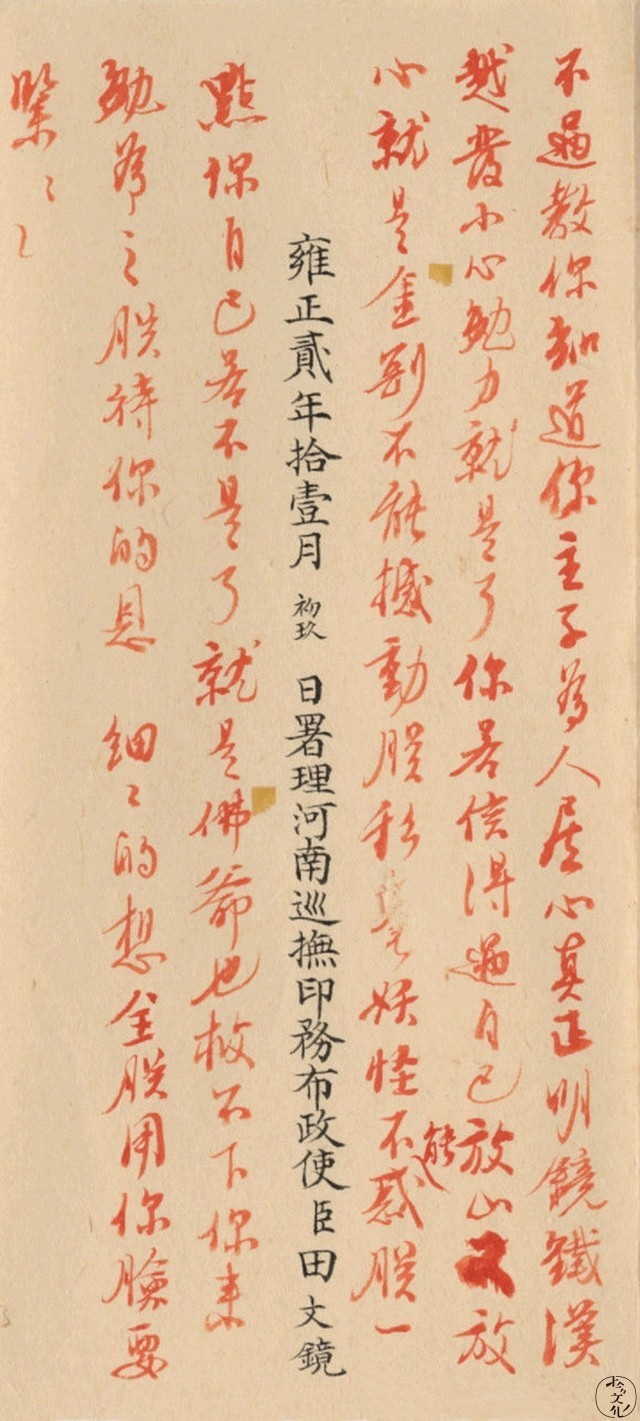 不過教你知道你主子為人居心真正明鏡鐵漢
越發小心勉力就是了你若信得過自己放心又放
心就是金剛不能撼動朕移毫妖怪不能惑朕一
雍正貳年拾壹月初玖日署理河南巡撫印務布政使臣田文鏡
點你自己若不是了就是佛爺也救不下你來
勉為之朕待你的恩 細〻的想全朕用你臉要
緊〻〻